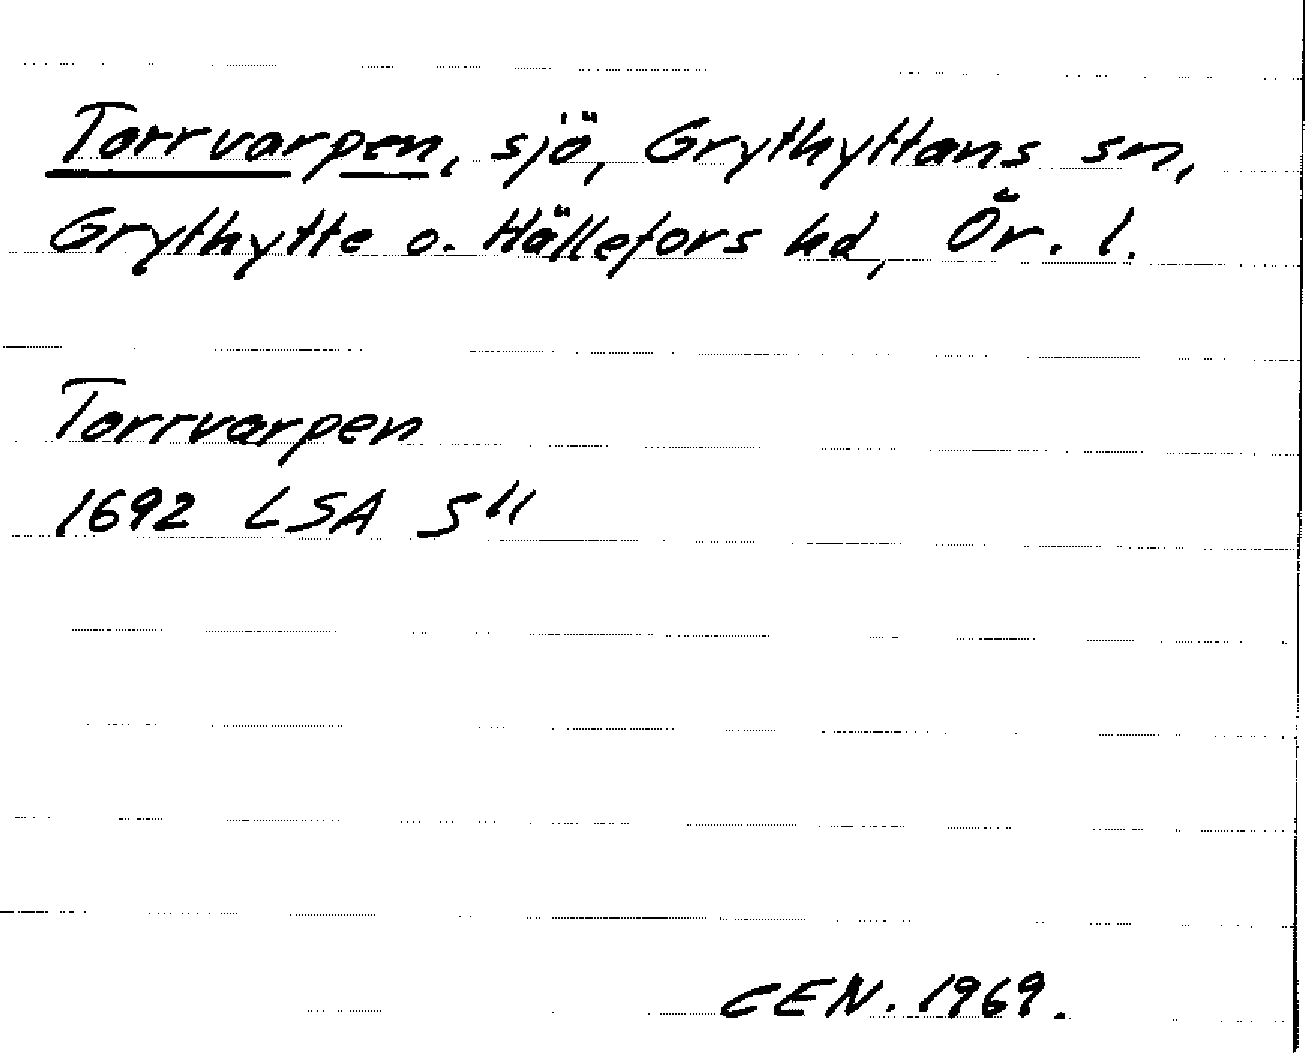 Torrvarpen, sjö, Grythyttans sn,
Grythytte o. Hällefors hd, Ör. l.
Torrvarpen
1692 LSA S11
CEN. 1969.